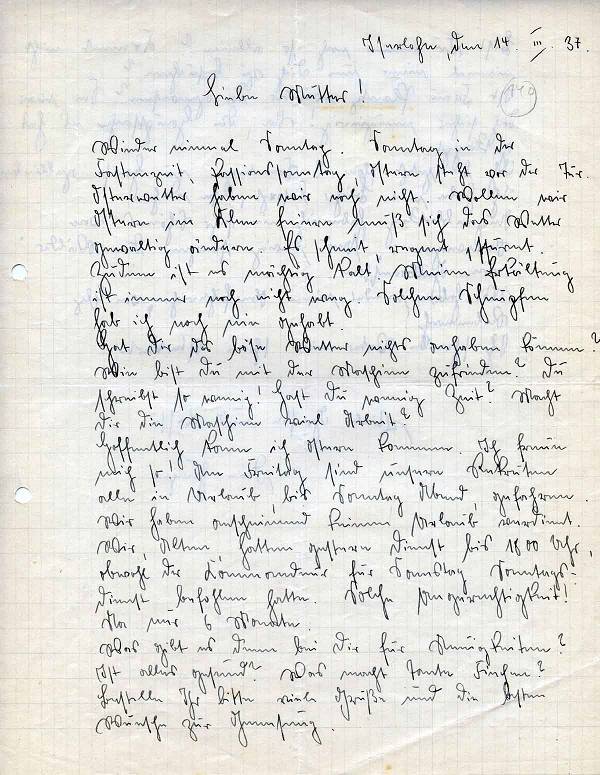 Iserlohn, den 14. III. 37.
140
Liebe Mutter!
Wieder einmal Sonntag. Sonntag in der
Fastenzeit, Passionssonntag. Ostern steht vor der Tür.
Osterwetter haben wir noch nicht. Wollen wir
Ostern im feiern, muß sich das Wetter
gewaltig ändern. Es schneit, regnet, stürmt.
Zudem ist es mächtig kalt! Meine Erkältung
ist immer noch nicht weg. Solchen Schnupfen
hab ich noch nie gehabt.
Hat Dir das böse Wetter nichts anhaben können?
Wie bist Du mit der Maschine zufrieden? Du
schreibst so wenig! Hast Du wenig Zeit? Macht
Dir die Maschine viel Arbeit?
Hoffentlich kann ich Ostern kommen. Ich freue
mich so! Am Freitag sind unsere Rekruten
alle in Urlaub, bis Sonntag Abend, gefahren.
Wir haben anscheinend keinen Urlaub verdient.
Wir, Alten, hatten gestern Dienst bis 18 00 Uhr,
obwohl der Kommandeur für Samstag Sonntags-
dienst befohlen hatte. Solche Ungerechtigkeit!
Na nur 6 Monate.
Was gibt es denn bei Dir für Neuigkeiten?
Ist alles gesund? Was macht Tante Finchen?
Bestelle Ihr bitte viele Grüße und die besten
Wünsche zur Genesung.